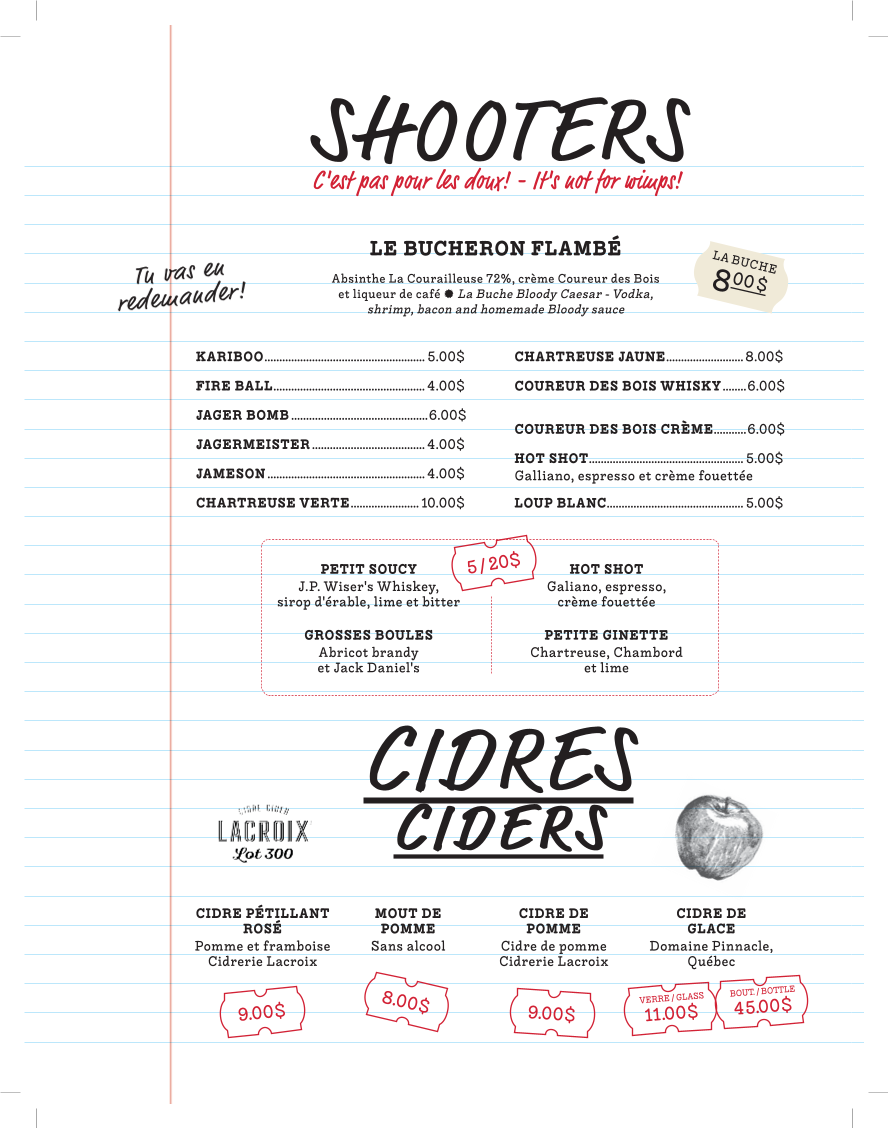 SHOOTERS
C'est pas pour les doux! - It's not for wimps!
LE BUCHERON FLAMBÉ
LA BUCHE
8 00 $
Tu vas en
redemander!
Absinthe La Courailleuse 72%, crème Coureur des Bois
et liqueur de café ✹ La Buche Bloody Caesar - Vodka,
shrimp, bacon and homemade Bloody sauce
KARIBOO 5.00$
FIRE BALL 4.00$
JAGER BOMB 6.00$
JAGERMEISTER 4.00$
JAMESON 4.00$
CHARTREUSE VERTE 10.00$
CHARTREUSE JAUNE 8.00$
COUREUR DES BOIS WHISKY 6.00$
COUREUR DES BOIS CRÈME 6.00$
HOT SHOT 5.00$
Galliano, espresso et crème fouettée
LOUP BLANC 5.00$
5 / 20$
PETIT SOUCY
J.P. Wiser's Whiskey,
sirop d'érable, lime et bitter
GROSSES BOULES
Abricot brandy
et Jack Daniel's
HOT SHOT
Galiano, espresso,
crème fouettée
PETITE GINETTE
Chartreuse, Chambord
et lime
CIDRES
CIDERS
CIDRE CIDER
LACROIX
Lot 300
CIDRE PÉTILLANT
ROSÉ
Pomme et framboise
Cidrerie Lacroix
9.00$
MOUT DE
POMME
Sans alcool
8.00$
CIDRE DE
POMME
Cidre de pomme
Cidrerie Lacroix
9.00$
CIDRE DE
GLACE
Domaine Pinnacle,
Québec
VERRE / GLASS
11.00$
BOUT. / BOTTLE
45.00$